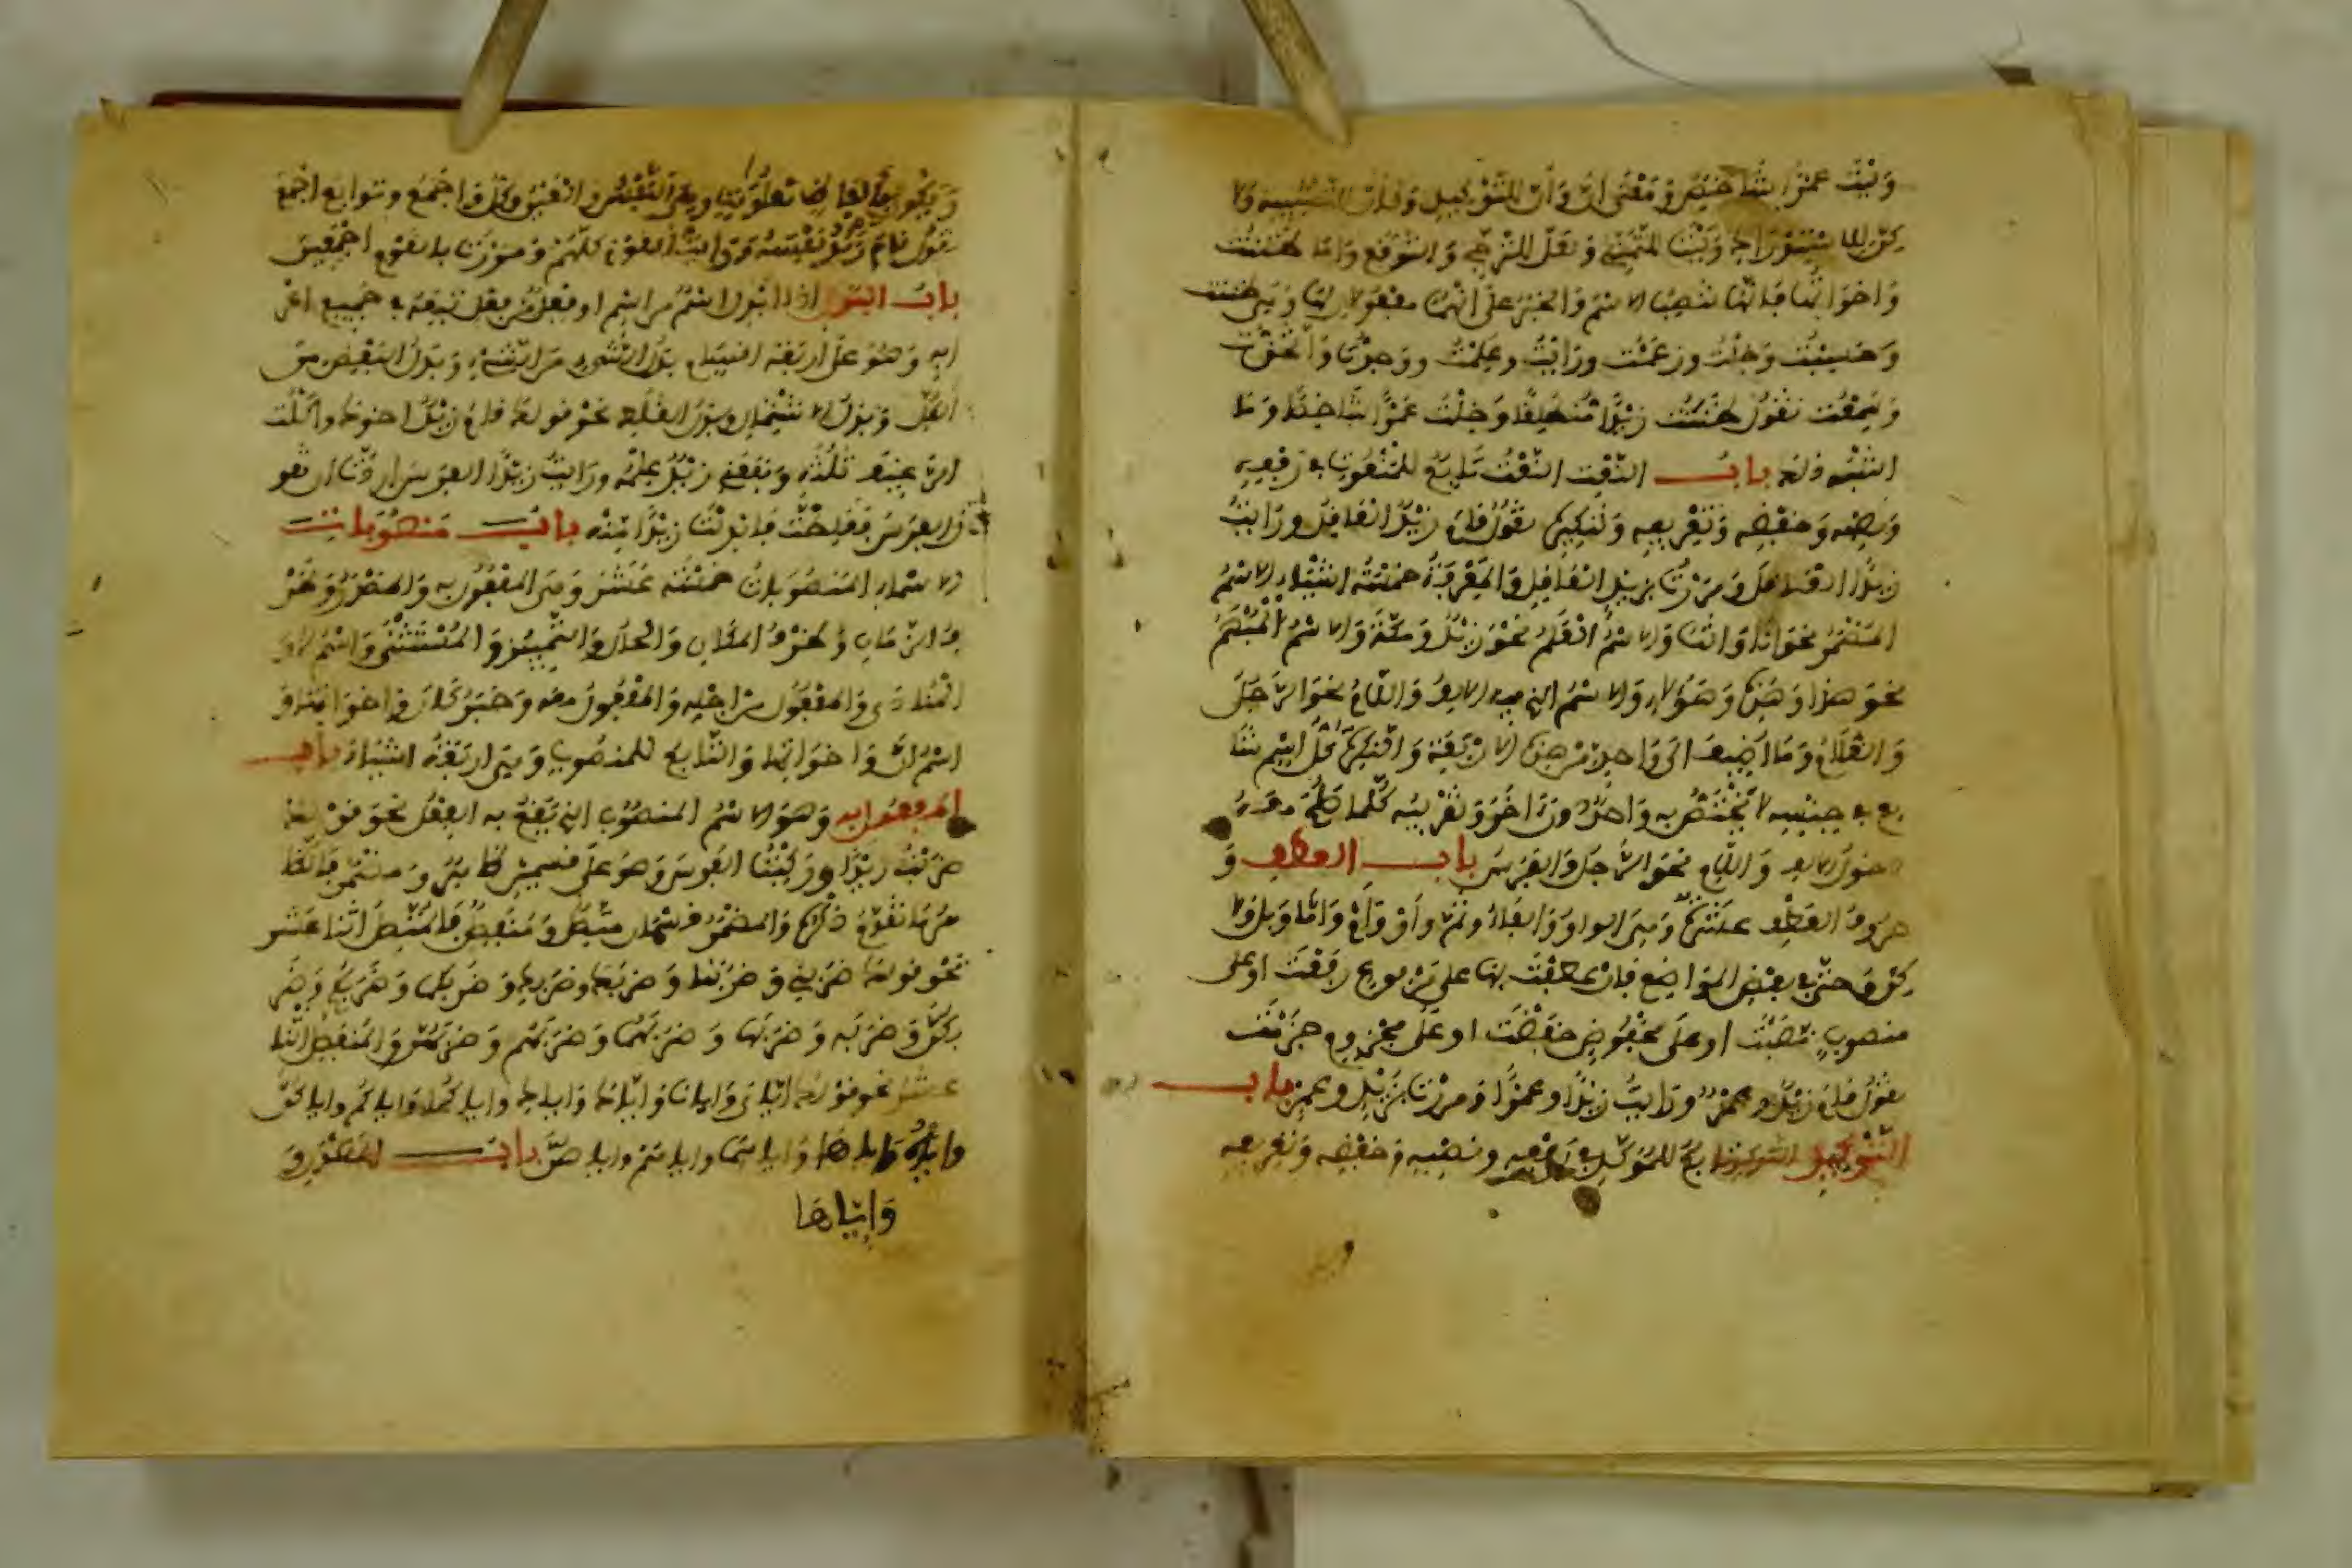 وَلَيْتَ عَمْرًا شَاخِصٌ وَمَعْنَى إِنَّ وَأَنَّ لِلتَّوْكِيدِ وَكَأَنَّ لِلتَّشْبِيهِ وَلَا
كِنَّ لِلاسْتِدْرَاكِ وَلَيْتَ لِلتَّمَنِّي وَلَعَلَّ لِلتَّرَجِّي وَالتَّوَقُّعِ وَأَمَّا ظَنَنْتُ
وَاخَوَاتُهَا فَإِنَّهَا تَنْصِبُ الاسْمَ وَالْخَبَرَ عَلَى أَنَّهُمَا مَفْعُولَانِ لَهَا وَهِيَ ظَنَنْتُ
وَحَسِبْتُ وَخِلْتُ وَزَعَمْتُ وَرَأَيْتُ وَعَلِمْتُ وَوَجَدْتُ وَاتَّخَذْتُ
وَسَمِعْتُ تَقُولُ ظَنَنْتُ زَيْدًا مُنْطَلِقًا وَخِلْتُ عَمْرًا شَاخِصًا وَمَا
اشْبَهَ ذلِكَ بابُ النَّعْتِ النَّعْتُ تَابِعٌ لِلْمَنْعُوتِ فِي رَفْعِهِ
وَنَصْبِهِ وَخَفْضِهِ وَتَعْرِيفِهِ وَتَنْكِيرِهِ تَقُولُ قَامَ زَيْدٌ الْعَاقِلُ وَرَايْتُ
زَيْدًا الْعَاقِلَ وَمَرَرْتُ بِزَيْدٍ الْعَاقِلِ وَالْمَعْرِفَةُ خَمْسَةُ اشْيَاءَ الاسْمُ
الْمُضْمَرُ نَحْوَ انَا وَانْتَ وَالاسْمُ الْعَلَمُ نَحْوَ زَيْدٌ وَمَكَّةَ وَالاسْمُ الْمُبْهَمُ
نَحْوَ هَذَا وَهَذِهِ وَهَؤُلَاءِ وَالاسْمُ الذِي فِيهِ الالِفُ وَاللَّامُ نَحْوَ الرَّجُلِ
وَالْغُلَامِ وَمَا اضِيفَ الَى وَاحِدٍ مِنْ هَذِهِ الارْبَعَةِ وَالنَّكِرَةُ كُلُّ اسْمٍ شَا
يِعٍ فِي جِنْسِهِ لَا يَخْتَصُّ بِهِ وَاحِدٌ دُونَ اخَرَ وَتَقْرِيبُهُ كُلُّمَا صَلُحَ
دخولُ الالِفِ وَاللَّامِ نَحْوَ الرَّجُلِ وَالْفَرَسِ بابُ العطفِ وَ
حُرُوفُ الْعَطْفِ عَشَرَةٌ وَهِيَ الواوُ وَالْفَاءُ وَثُمَّ وَاوْ وَامْ وَامَّا وَبَلْ وَلَا
كِنْ وَحَتَّى فِي بَعْضِ الْمَوَاضِعِ فَإِنْ عَطَفْتَ بِهَا عَلَى مَرْفُوعٍ رَفَعْتَ اوْ عَلَى
مَنْصُوبٍ نَصَبْتَ اوْ عَلَى مَخْفُوضٍ خَفَضْتَ اوْ عَلَى مَجْزُومٍ جَزَمْتَ
تَقُولُ قَامَ زَيْدٌ وَعَمْرٌو وَرَايْتُ زَيْدًا وَعَمْرًا وَمَرَرْتُ بِزَيْدٍ وَعَمْرٍو بابُ
التَّوْكِيدِ التوكيد تابِعٌ لِلْمُؤَكَّدِ فِي رَفْعِهِ وَنَصْبِهِ وَخَفْضِهِ وَتَعْرِيفِهِ
وَيَكُونُ بِأَلْفَاظٍ مَعْلُومَةٍ وَهِيَ النَّفْسُ وَالْعَيْنُ وَكُلُّ وَاجْمَعُ وَتَوَابِعُ اجْمَعَ
تَقُولُ قَامَ زَيْدٌ نَفْسُهُ وَرَايْتُ الْقَوْمَ كُلَّهُمْ وَمَرَرْتُ بِالْقَوْمِ اجْمَعِينَ
بابُ البَدَلِ اذَا ابْدِلَ اسْمٌ مِنِ اسْمٍ اوْ فِعْلٌ مِنْ فِعْلٍ تَبِعَهُ فِي جَمِيعِ اعْرَ
ابِهِ وَهُوَ عَلَى ارْبَعَةِ اقْسَامٍ بَدَلُ الشَّيْءِ مِنَ الشَّيْءِ وَبَدَلُ الْبَعْضِ مِنَ
الْكُلِّ وَبَدَلُ الاشْتِمَالِ وَبَدَلُ الْغَلَطِ نَحْوُ قَولِكَ قَامَ زَيْدٌ اخُوكَ وَاكَلْتُ
الرَّغِيفَ ثُلُثَهُ وَنَفَعَنِي زَيْدٌ عِلْمُهُ وَرَايْتُ زَيْدًا الْفَرَسَ ارَدْتَ ان تَقُو
لَ الفَرَسَ فَغَلِطْتَ فَابْدَلْتَ زَيْدًا مِنْهُ بابُ مَنصُوبَاتِ
الاسْمَاءِ الْمَنْصُوبَاتُ خَمْسَةَ عَشَرَ وَهِيَ الْمَفْعُولُ بِهِ وَالْمَصْدَرُ وَظَرْ
فُ الزَّمَانِ وَظَرْفُ الْمَكَانِ وَالْحَالُ وَالتَّمْيِيزُ وَالْمُسْتَثْنَى وَاسْمُ لَا وَ
الْمُنَادَى وَالْمَفْعُولُ مِنْ اجْلِهِ وَالْمَفْعُولُ مَعَهُ وَخَبَرُ كَانَ وَاخَوَاتِهَا وَ
اسْمُ انَّ وَاخَوَاتِهَا وَالتَّابِعُ لِلْمَنْصُوبِ وَهِيَ ارْبَعَةُ اشْيَاءَ بابُ
المفعول به وَهُوَ الاسْمُ الْمَنْصُوبُ الذِي يَقَعُ بِهِ الْفِعْلُ نَحْوَ قَوْلِكَ
ضَرَبْتُ زَيْدًا وَرَكِبْتُ الْفَرَسَ وَهُوَ عَلَى قِسْمَيْنِ ظَاهِرٌ وَمُضْمَرٌ فَالظَّا
هِرُ مَا تَقَدَّمَ ذِكْرُهُ وَالْمُضْمَرُ قِسْمَانِ مُتَّصِلٌ وَمُنْفَصِلٌ فَالْمُتَّصِلُ اثْنَا عَشَرَ
نَحْوُ قَولِكَ ضَرَبَنِي وَضَرَبَنَا وَضَرَبَكَ وَضَرَبَكِ وَضَرَبَكُمَا وَضَرَبَكُمْ وَضَرَ
بَكُنَّ وَضَرَبَهُ وَضَرَبَهَا وَضَرَبَهُمَا وَضَرَبَهُمْ وَضَرَبَهُنَّ وَالْمُنْفَصِلُ اثْنَا
عَشَرَ نَحْوُ قَوْلِكَ ايَّايَ وَايَّانَا وَايَّاكَ وَايَّاكِ وَايَّاكُمَا وَايَّاكُمْ وَايَّاكُنَّ
وَايَّاهُ وَايَّاهَا وَايَّاهُمَا وَايَّاهُمْ وَايَّاهُنَّ بابُ المَصْدَرِ وَ
وَإِيَّاهَا